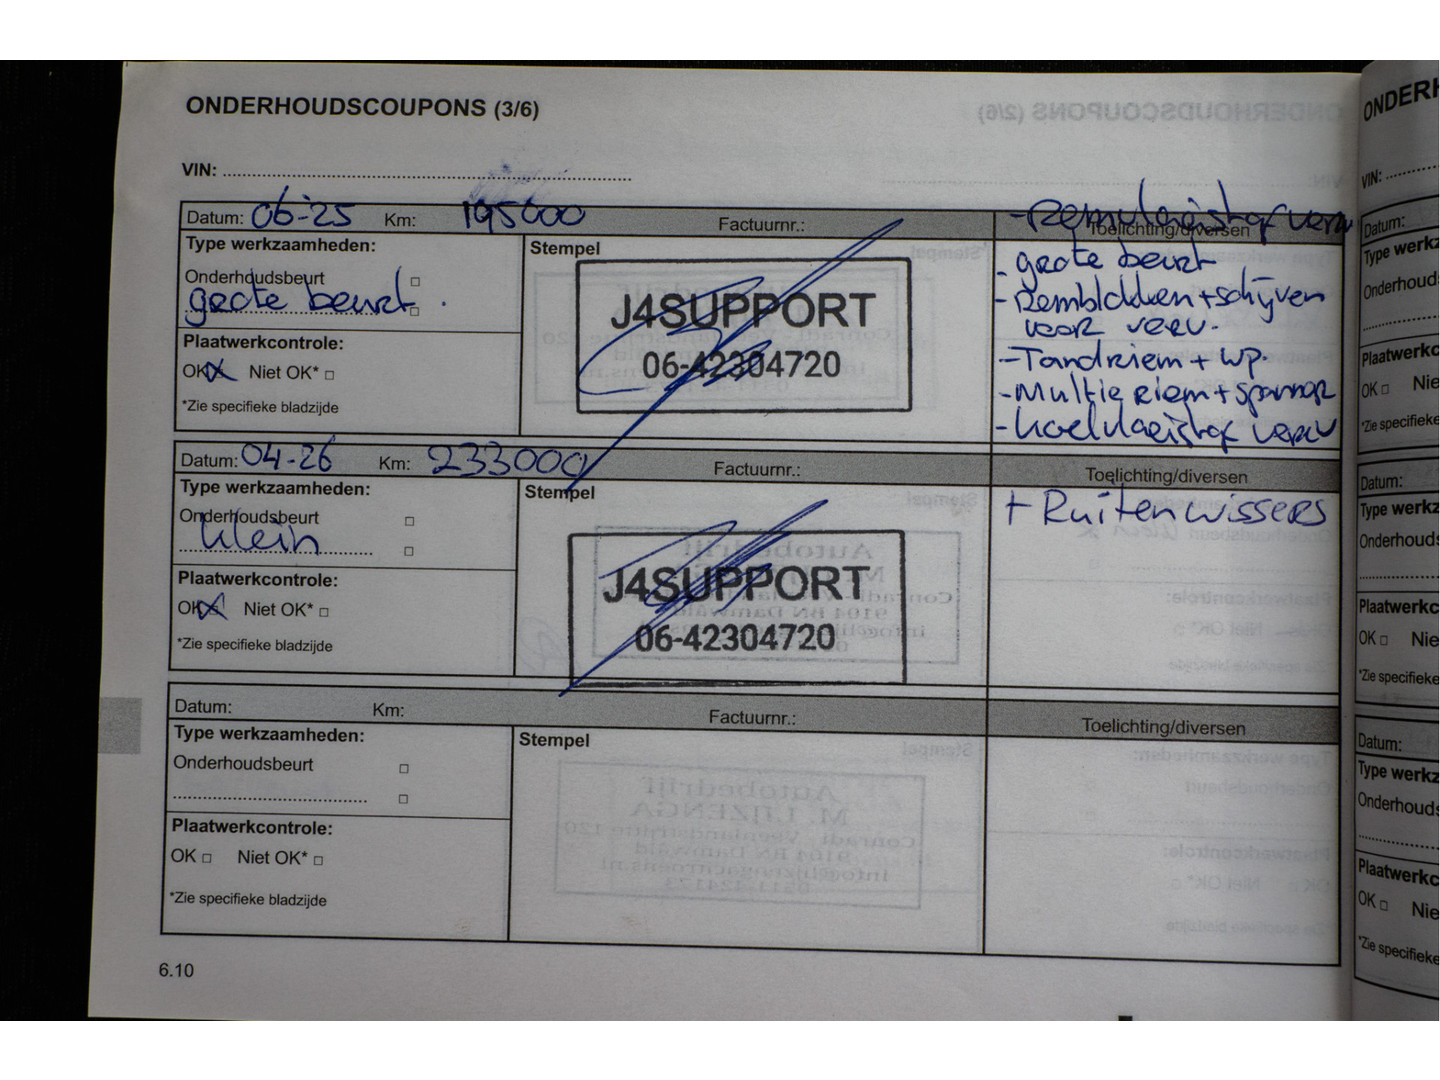 ONDERHOUDSCOUPONS (3/6)
VIN:
Datum: 06-25 Km: 195000 Factuurnr.: Toelichting/diversen
Type werkzaamheden:
Onderhoudsbeurt
grote beurt.
Plaatwerkcontrole:
OK Niet OK*
*Zie specifieke bladzijde
Stempel
J4SUPPORT
06-42304720
- Remvloeistof verv
- grote beurt
- Remblokken + schijven
voor verv.
- Tandriem + wp.
- Multie riem + spanner
- koelvloeistof verv
Datum: 04-26 Km: 233000 Factuurnr.: Toelichting/diversen
Type werkzaamheden:
Onderhoudsbeurt
klein
Plaatwerkcontrole:
OK Niet OK*
*Zie specifieke bladzijde
Stempel
J4SUPPORT
06-42304720
+ Ruitenwissers
Datum: Km: Factuurnr.: Toelichting/diversen
Type werkzaamheden:
Onderhoudsbeurt
Plaatwerkcontrole:
OK Niet OK*
*Zie specifieke bladzijde
Stempel
6.10
ONDERH
VIN:
Datum:
Type werkz
Onderhouds
Plaatwerkc
OK Nie
*Zie specifieke
Datum:
Type werkz
Onderhouds
Plaatwerkc
OK Nie
*Zie specifieke
Datum:
Type werkz
Onderhouds
Plaatwerkc
OK Nie
*Zie specifieke